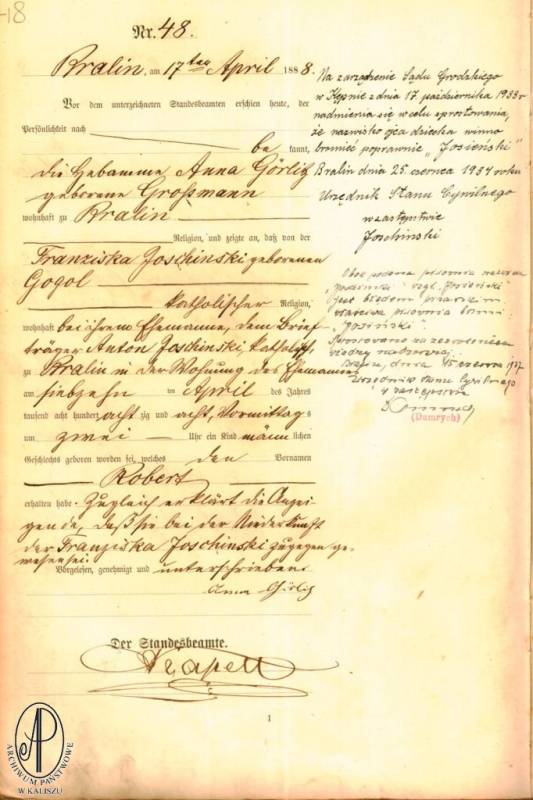 -18
Nr. 48.
Bralin, am 17ten April 1888.
Vor dem unterzeichneten Standesbeamten erschien heute, der
Persönlichkeit nach
be kannt,
die Hebamme Anna Görlitz
geborene Großmann
wohnhaft zu Bralin
Religion, und zeigte an, daß von der
Franziska Joschinski geborenen
Gogol
katholischer Religion,
wohnhaft bei ihrem Ehemanne, dem Brief
träger Anton Joschinski, katholisch,
zu Bralin in der Wohnung des Ehemannes
am siebzehn ten April des Jahres
tausend acht hundert acht zig und acht, Vormittags
um zwei Uhr ein Kind männ lichen
Geschlechts geboren worden sei, welches den Vornamen
Robert
erhalten habe. Zugleich erklärt die Anzei
gende, daß sie bei der Niederkunft
der Franziska Joschinski zugegen ge
wesen sei.
Vorgelesen, genehmigt und unterschrieben
Anna Görlitz
Der Standesbeamte.
1
Na zarządzenie Sądu Grodzkiego
w Kępnie z dnia 17 października 1933 r
nadmienia się w celu sprostowania,
że nazwisko ojca dziecka winno
brzmieć poprawnie „Josieński"
Bralin dnia 25 czerwca 1934 roku
Urzędnik Stanu Cywilnego
w zastępstwie
Joschinski
Obok podana pisownia nazwiska
jest błędem pisarskim
właściwa pisownia brzmi:
„Josiński"
Sprostowano za zezwoleniem
władzy nadzorczej
Bralin, dnia 15 czerwca 1937
Urzędnik Stanu Cywilnego
w zastępstwie
(Damrych)
ARCHIWUM PAŃSTWOWE
W KALISZU